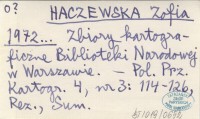 0? HACZEWSKA Zofia
1972... Zbiory kartogra-
ficzne Biblioteki Narodowej
w Warszawie. – Pol. Prz.
Kartogr. 4, nr 3: 114-126,
Rez., Sum.